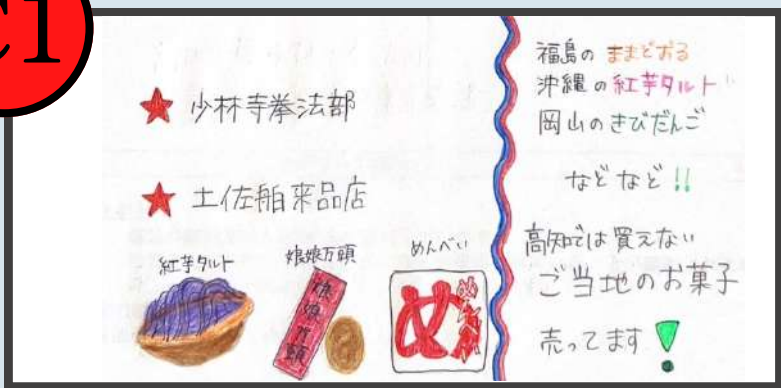 C1
★ 少林寺拳法部
★ 土佐舶来品店
紅芋タルト
娘娘万頭
めんべい
娘娘万頭
め
めんべい
福島のままどおる
沖縄の紅芋タルト
岡山のきびだんご
などなど!!
高知では買えない
ご当地のお菓子
売ってます!